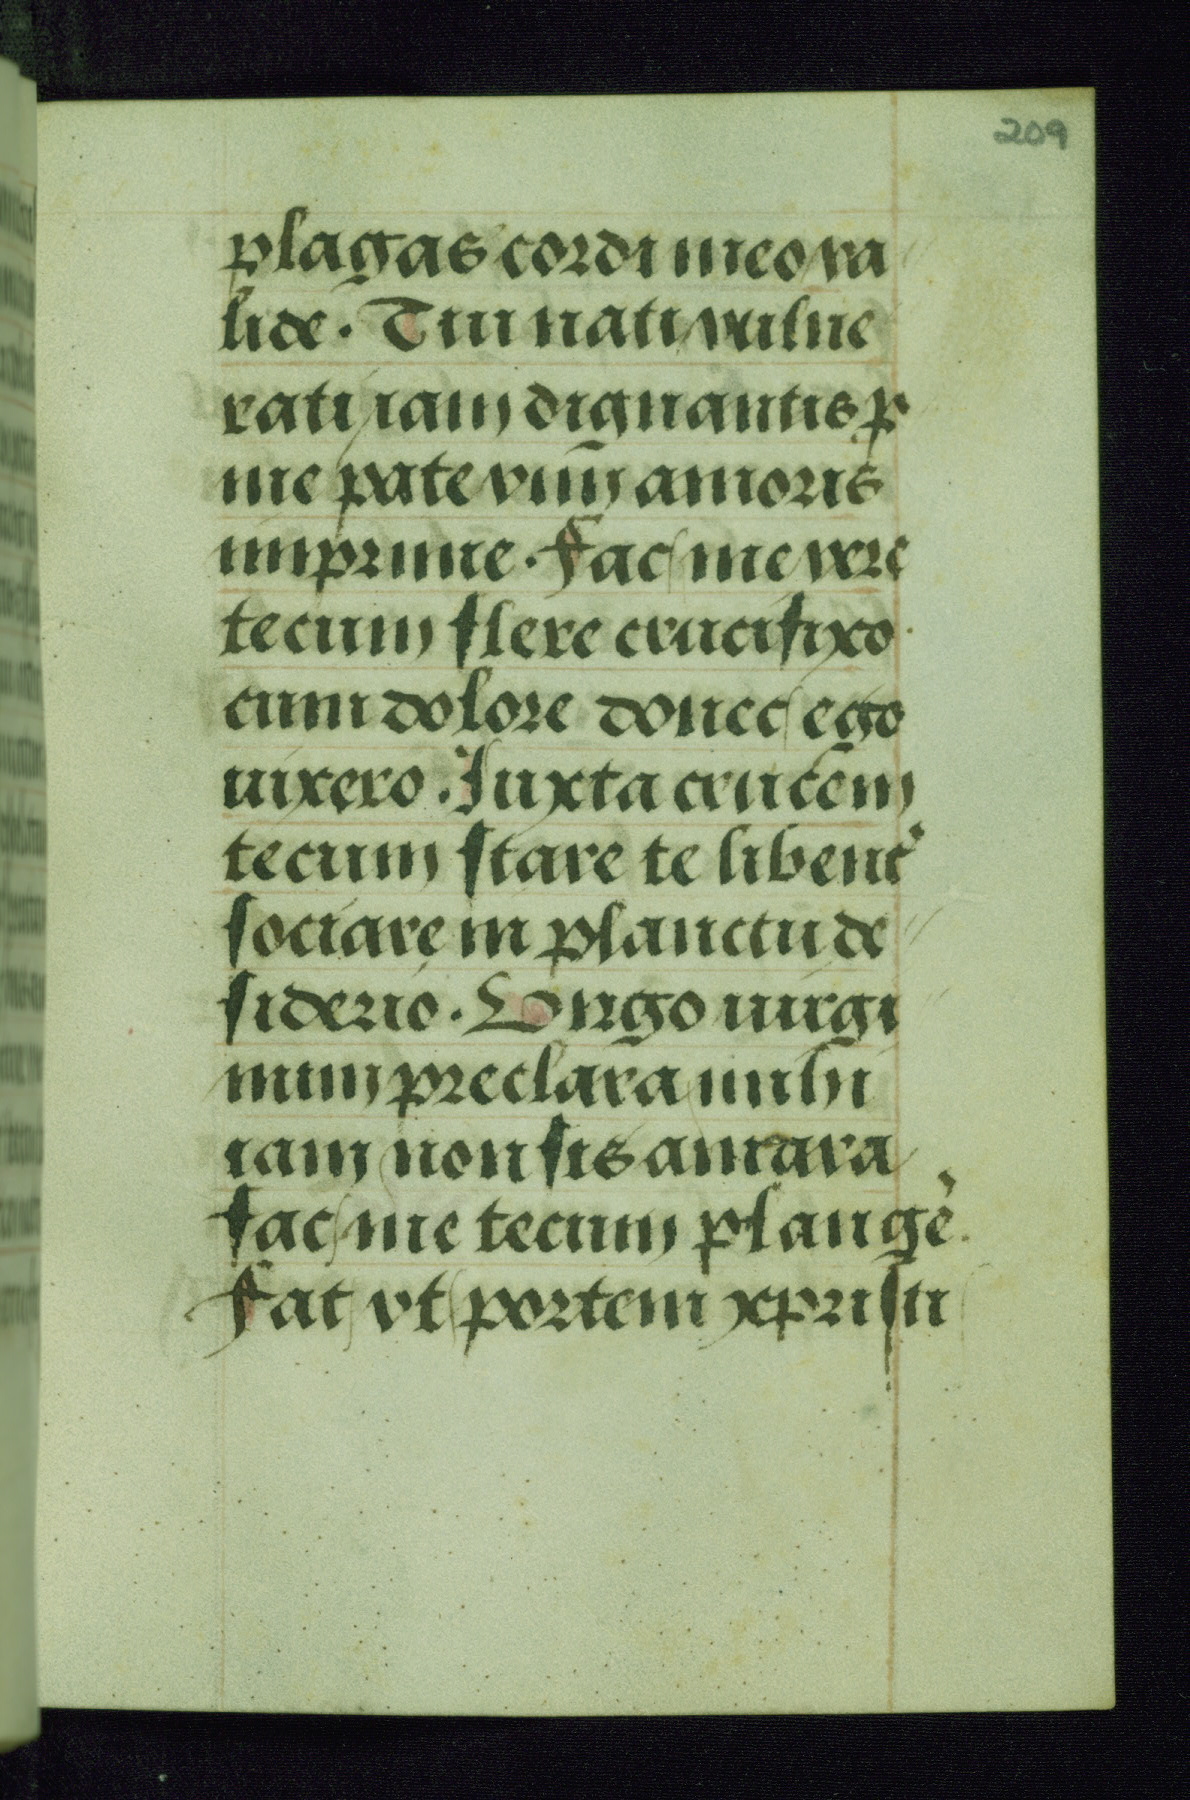 209
plagas cordi meo va
lide. Tui nati vulne
rati iam dignantis p
me pate viuȳ amoris
imprime. Fac me vere
tecum flere crucifixo
cum dolore donec ego
uixero. Iuxta crucem
tecum stare te libent᾽
sociare in planctu de
siderio. Uirgo uirgi
num preclara mihi
iam non sis amara
fac me tecum plang̕e
Fac vt portem xpristi